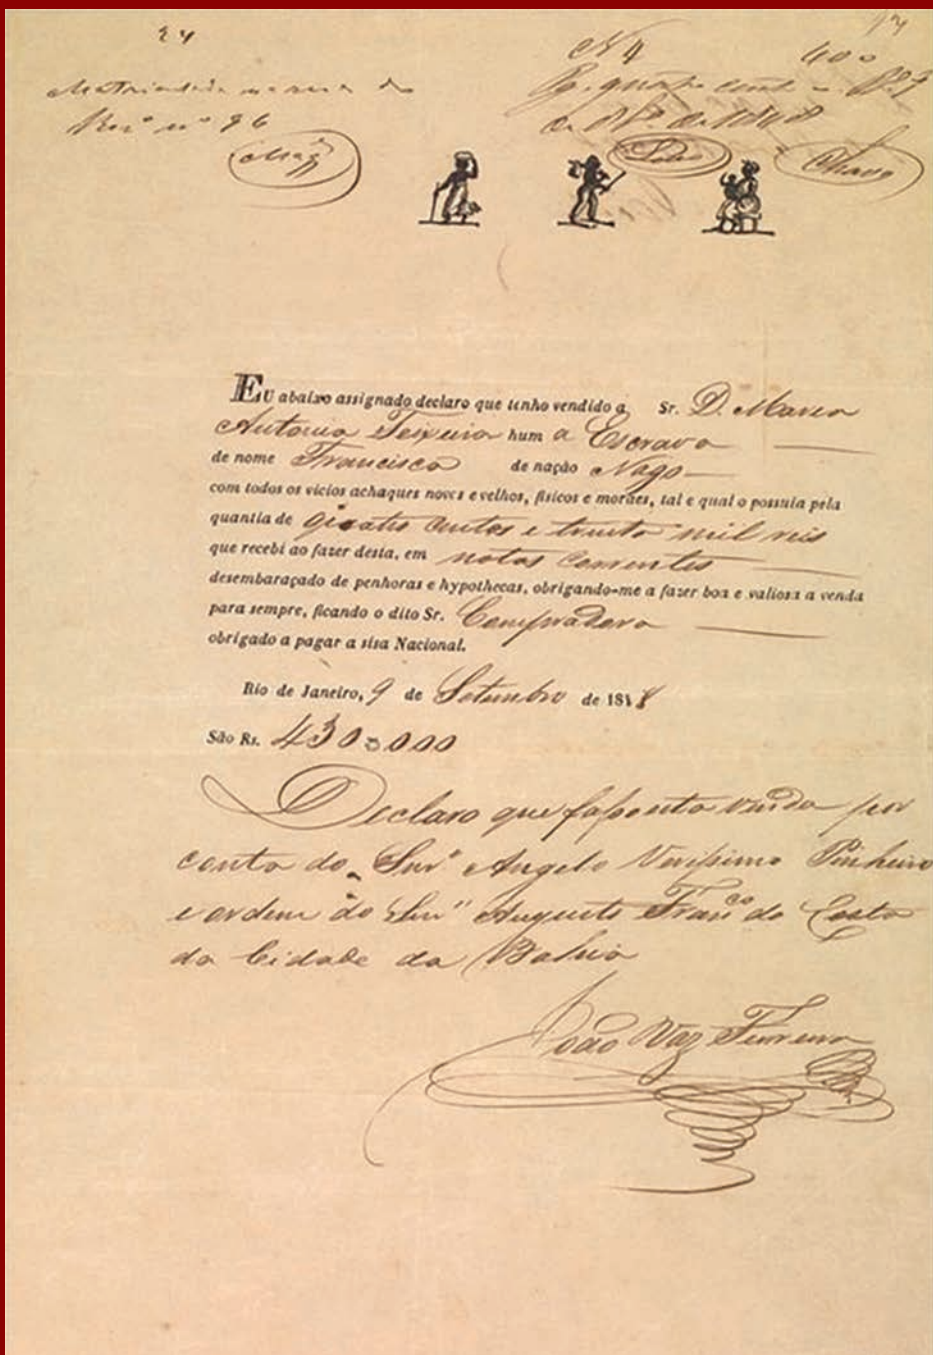 24
Nº 4 400
Rª nº 96
EU abaixo assignado declaro que tenho vendido a Sr. D. Maria
Antonia Teixeira hum a Escrava
de nome Francisca de nação Nagô
com todos os vicios achaques novos e velhos, fisicos e moràes, tal e qual o possuia pela
quantia de quatro centos e trinta mil reis
que recebi ao fazer desta, em notas correntes
desembaraçado de penhoras e hypothecas, obrigando-me a fazer boa e valiosa a venda
para sempre, ficando o dito Sr. Compradora
obrigado a pagar a sisa Nacional.
Rio de Janeiro, 9 de Setembro de 1848
São Rs. 430 000
Declaro que faço esta venda por
conta do Snr Angelo Verissimo Pinheiro
e ordem do Snr Augusto Franco da Costa
da Cidade da Bahia
João Vaz Ferreira